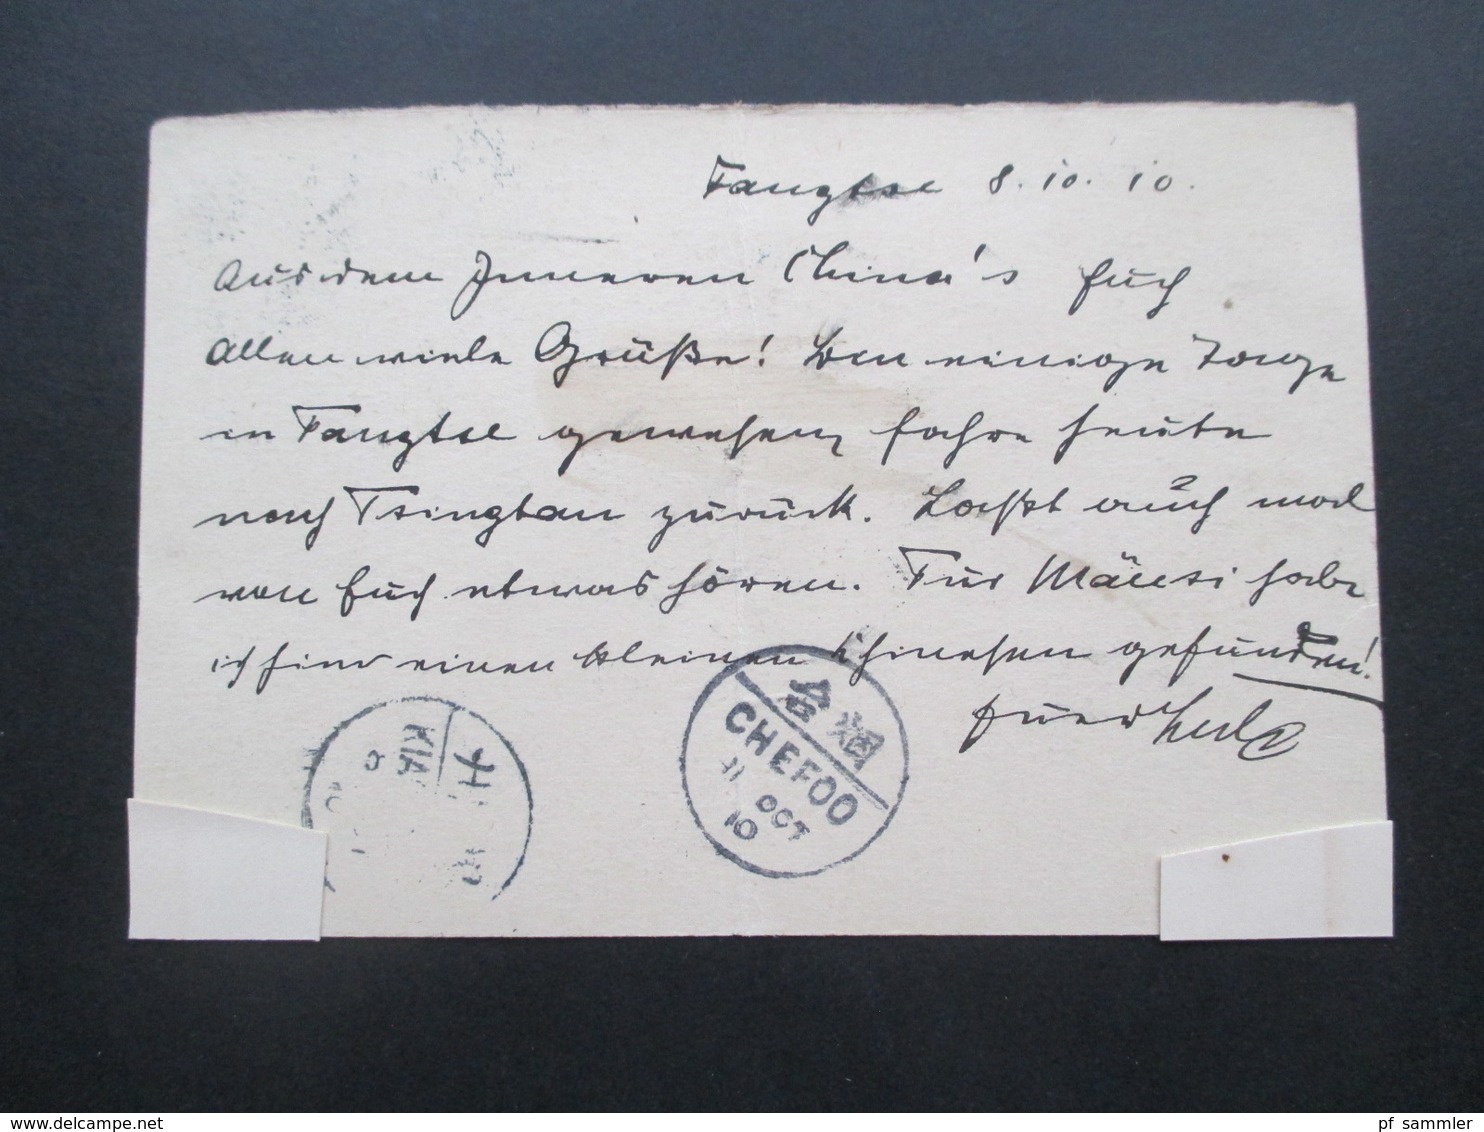 Fangtse 8.10.10.
Aus dem Inneren China's Euch
Allen viele Grüße! Bin einige Tage
in Fangtse gewesen, fahre heute
nach Tsingtau zurück. Laßt auch mal
von Euch etwas hören. Für Mäusi habe
ich hier einen kleinen Chinesen gefunden!
Euer
台烟
CHEFOO
11
OCT
10
KIA
www.delcampe.net
pf_sammler